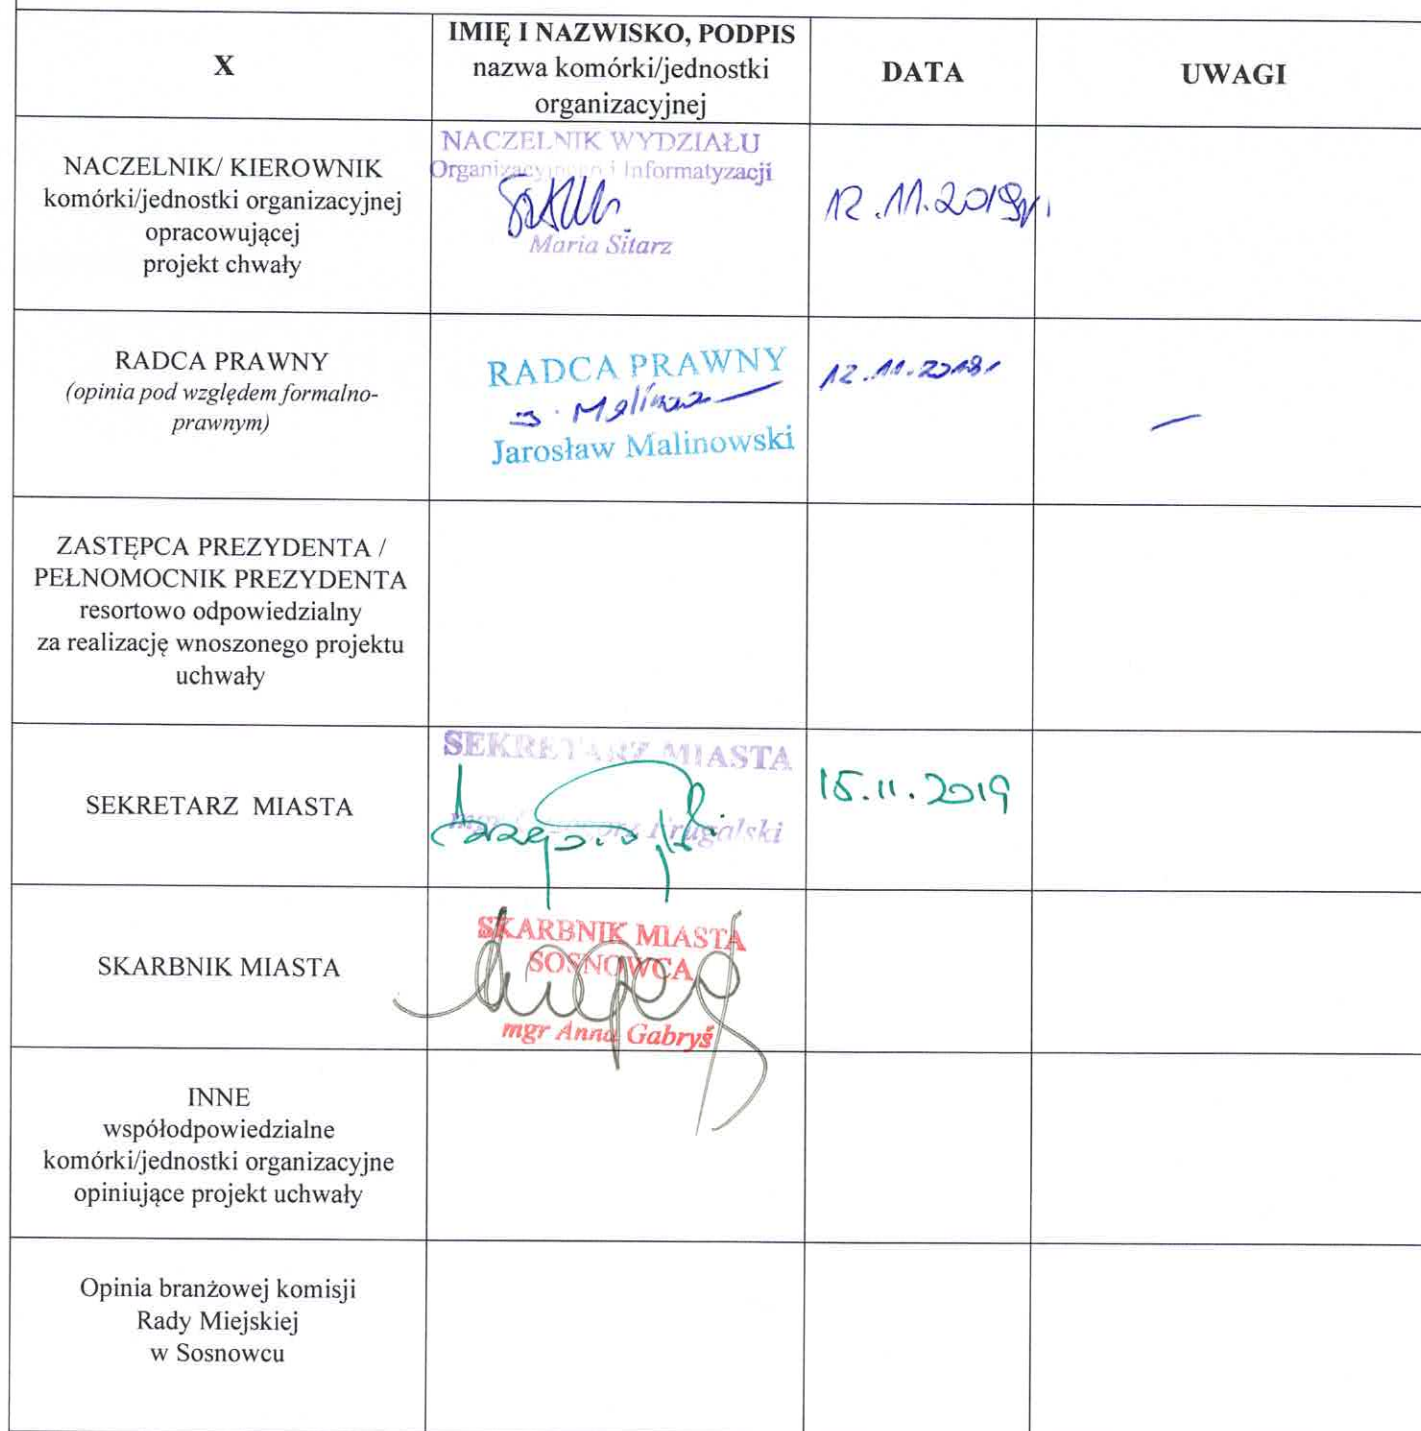 X
IMIĘ I NAZWISKO, PODPIS
nazwa komórki/jednostki
organizacyjnej
DATA
UWAGI
NACZELNIK/ KIEROWNIK
komórki/jednostki organizacyjnej
opracowującej
projekt chwały
NACZELNIK WYDZIAŁU
Organizacyjnego i Informatyzacji
Maria Sitarz
12.11.2019r.
RADCA PRAWNY
(opinia pod względem formalno-
prawnym)
RADCA PRAWNY
J. Malinow
Jarosław Malinowski
12.11.2019r
—
ZASTĘPCA PREZYDENTA /
PEŁNOMOCNIK PREZYDENTA
resortowo odpowiedzialny
za realizację wnoszonego projektu
uchwały
SEKRETARZ MIASTA
SEKRETARZ MIASTA
mgr Frugalski
15.11.2019
SKARBNIK MIASTA
SKARBNIK MIASTA
SOSNOWCA
mgr Anna Gabryś
INNE
współodpowiedzialne
komórki/jednostki organizacyjne
opiniujące projekt uchwały
Opinia branżowej komisji
Rady Miejskiej
w Sosnowcu